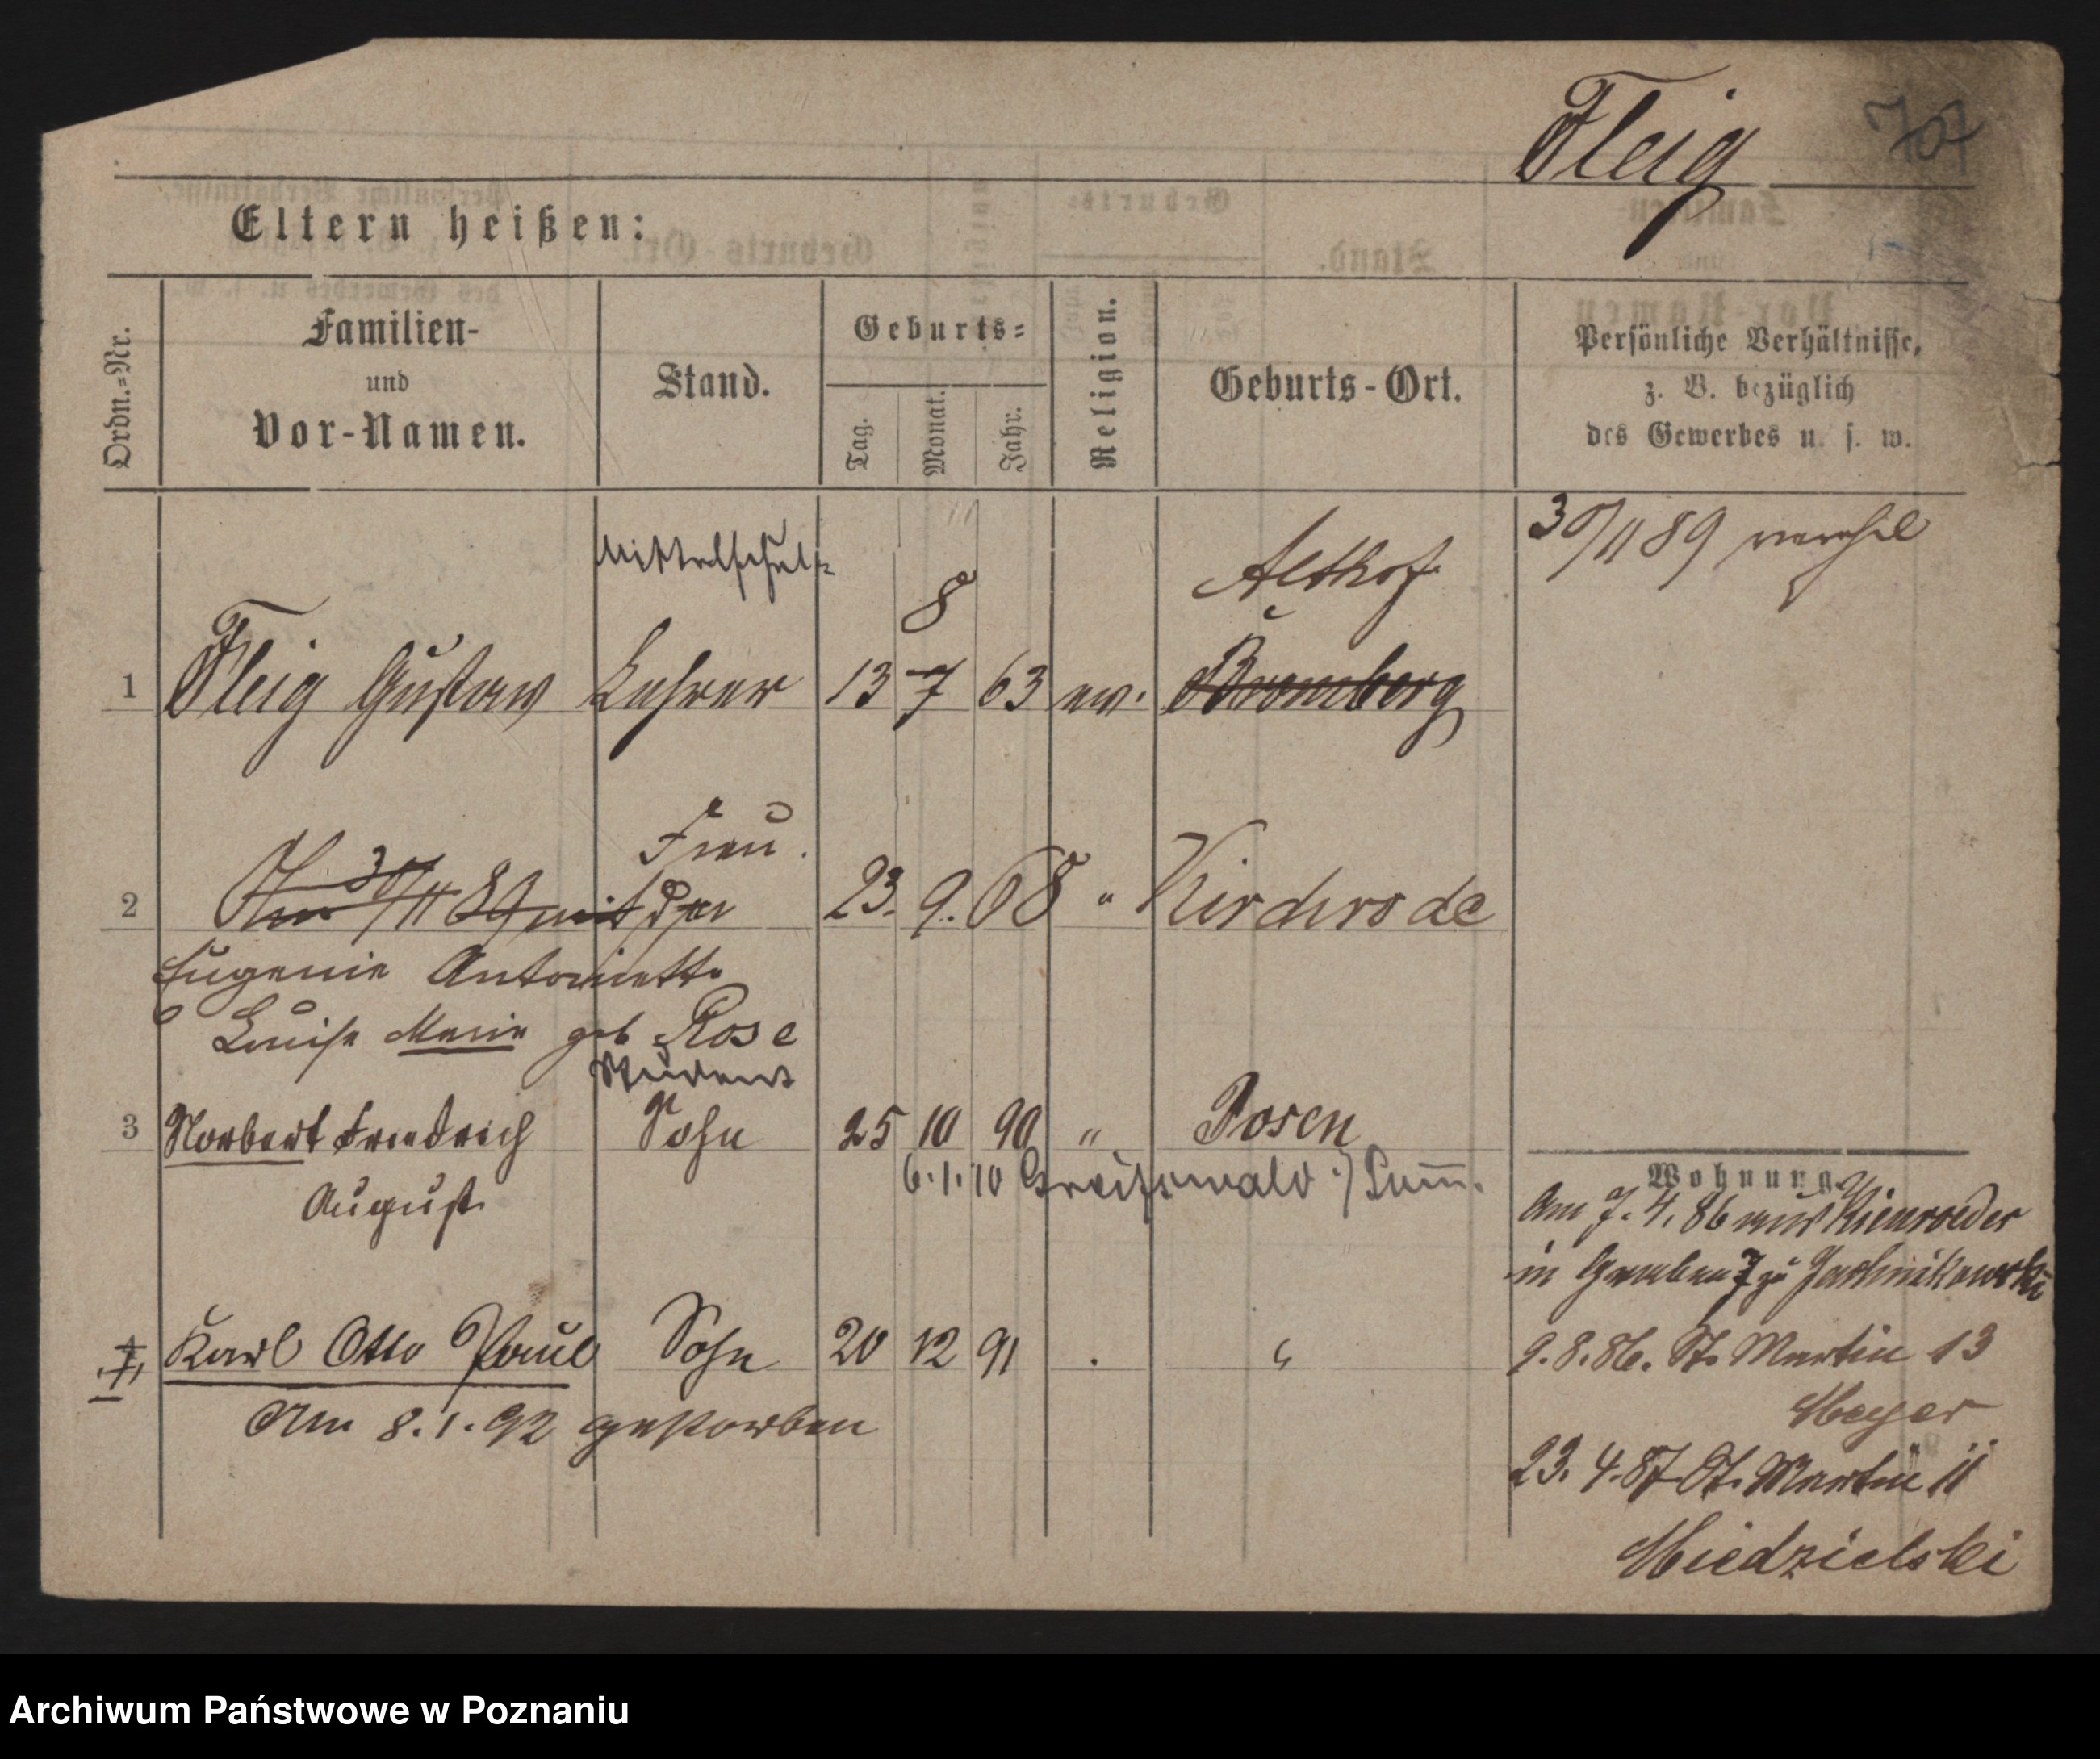 Fleig 707
Eltern heißen:
Ordn.=Nr.
Familien-
und
Vor-Namen.
Stand.
Geburts=
Tag.
Monat.
Jahr.
Religion.
Geburts-Ort.
Persönliche Verhältnisse,
z. B. bezüglich
des Gewerbes u. s. w.
30/11 89 verehel
Mittelschul=
8
Althof
1 Fleig Gustav Lehrer 13 7 63 ev. Bromberg
Frau.
2 30/11 89 mit der 23. 9. 68 " Kirchrode
Eugenie Antoinette
Louise Marie geb Rose
Student
3 Norbert Friedrich Sohn 25 10 90 " Posen
August
6.1.10 Greifswald
4 Karl Otto Paul Sohn 20 12 91 . "
Am 8.1.92 gestorben
Wohnung
Am 7.4.86 aus
in Graben 7 zu
9.8.86. St. Martin 13
Meyer
23.4.87 St. Martin 11
Miedzielski
Archiwum Państwowe w Poznaniu